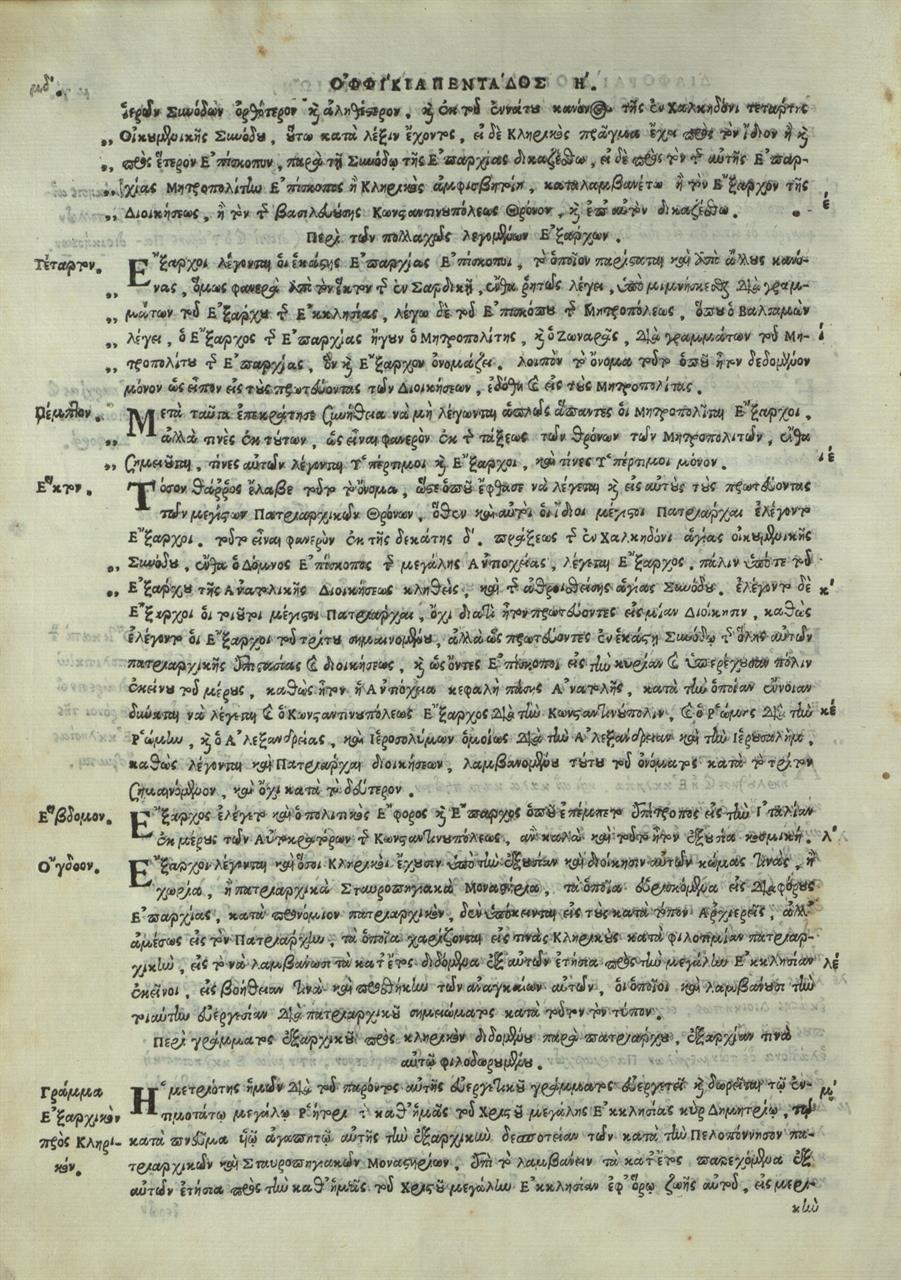 ΟΦΦΙΚΙΑ ΠΕΝΤΑΔΟΣ Η.
ἱερῶν Συνόδων ὀρθότερον καὶ ἀληθέστερον, καὶ ἐκ τοῦ ἐννάτου κανόνος τῆς ἐν Χαλκηδόνι τετάρτης
„ Οἰκουμενικῆς Συνόδου, οὕτω κατὰ λέξιν ἔχοντος, εἰ δὲ Κληρικὸς πρᾶγμα ἔχει πρὸς τὸν ἴδιον ἢ καὶ
„ πρὸς ἕτερον Ἐπίσκοπον, παρὰ τῇ Συνόδῳ τῆς Ἐπαρχίας δικαζέσθω, εἰ δὲ πρὸς τὸν τῆς αὐτῆς Ἐπαρ-
„ χίας Μητροπολίτην Ἐπίσκοπος ἢ Κληρικὸς ἀμφισβητοίη, καταλαμβανέτω ἢ τὸν Ἔξαρχον τῆς
„ Διοικήσεως, ἢ τὸν τῆς βασιλευούσης Κωνσταντινουπόλεως Θρόνον, καὶ ἐπ' αὐτὸν δικαζέσθω. έ
Περὶ τῶν πολλαχῶς λεγομένων Ἐξάρχων.
Τέταρτον. Ἔξαρχοι λέγονται οἱ ἑκάστης Ἐπαρχίας Ἐπίσκοποι, τὸ ὁποῖον παρίσταται καὶ ἀπὸ ἄλλους κανό-
„ νας, ὅμως φανερὰ ἀπὸ τὸν ἕκτον τῆς ἐν Σαρδικῇ, ἔνθα ῥητῶς λέγει, ὑπομιμνήσκεσθαι διὰ γραμ-
„ μάτων τοῦ Ἐξάρχου τῆς Ἐκκλησίας, λέγω δὲ τοῦ Ἐπισκόπου τῆς Μητροπόλεως, ὅπου ὁ Βαλσαμὼν
λέγει, ὁ Ἔξαρχος τῆς Ἐπαρχίας ἤγουν ὁ Μητροπολίτης, καὶ ὁ Ζωναρᾶς, διὰ γραμμάτων τοῦ Μη- ί
„ τροπολίτου τῆς Ἐπαρχίας, ὃν καὶ Ἔξαρχον ὀνομάζει. λοιπὸν τὸ ὄνομα τοῦτο ὁποῦ ἦτον δεδομένον
μόνον ὡς εἶπον εἰς τοὺς πρωτεύοντας τῶν Διοικήσεων, ἐδόθη καὶ εἰς τοὺς Μητροπολίτας.
Πέμπτον. Μετὰ ταῦτα ἐπεκράτησε συνήθεια νὰ μὴ λέγωνται ἁπλῶς ἅπαντες οἱ Μητροπολῖται Ἔξαρχοι,
„ ἀλλὰ τινὲς ἐκ τούτων, ὡς εἶναι φανερὸν ἐκ τῆς τάξεως τῶν θρόνων τῶν Μητροπολιτῶν, ἔνθα
„ σημειοῦται, τίνες αὐτῶν λέγονται Ὑπέρτιμοι καὶ Ἔξαρχοι, καὶ τίνες Ὑπέρτιμοι μόνον. ιέ
Ἕκτον. Τόσον θάῤῥος ἔλαβε τοῦτο τὸ ὄνομα, ὥστε ὁποῦ ἔφθασε νὰ λέγεται καὶ εἰς αὐτοὺς τοὺς πρωτεύοντας
τῶν μεγίστων Πατριαρχικῶν Θρόνων, ὅθεν καὶ αὐτοὶ οἱ ἴδιοι μέγιστοι Πατριάρχαι ἐλέγοντο
Ἔξαρχοι. τοῦτο εἶναι φανερὸν ἐκ τῆς δεκάτης δ΄. πράξεως τῆς ἐν Χαλκηδόνι ἁγίας οἰκουμενικῆς
„ Συνόδου, ἔνθα ὁ Δόμνος Ἐπίσκοπος τῆς μεγάλης Ἀντιοχείας, λέγεται Ἔξαρχος, πάλιν ὑπό τε τοῦ
„ Ἐξάρχου τῆς Ἀνατολικῆς Διοικήσεως κληθεὶς, καὶ τῆς ἀθροισθείσης ἁγίας Συνόδου. ἐλέγοντο δὲ κ΄
Ἔξαρχοι οἱ τοιοῦτοι μέγιστοι Πατριάρχαι, ὄχι διατὶ ἦτον πρωτεύοντες εἰς μίαν Διοίκησιν, καθὼς
ἐλέγοντο οἱ Ἔξαρχοι τοῦ τρίτου σημαινομένου, ἀλλὰ ὡς πρωτεύοντες ἐν ἑκάστῃ Συνόδῳ τῆς ὅλης αὐτῶν
πατριαρχικῆς ἐπιστασίας καὶ διοικήσεως, καὶ ὡς ὄντες Ἐπίσκοποι εἰς τὴν κυρίαν καὶ ὑπερέχουσαν πόλιν
ἐκείνου τοῦ μέρους, καθὼς ἦτον ἡ Ἀντιόχεια κεφαλὴ πάσης Ἀνατολῆς, κατὰ τὴν ὁποίαν ἔννοιαν
δύναται νὰ λέγεται καὶ ὁ Κωνσταντινουπόλεως Ἔξαρχος διὰ τὴν Κωνσταντινούπολιν, καὶ ὁ Ῥώμης διὰ τὴν κέ
Ῥώμην, καὶ ὁ Ἀλεξανδρείας, καὶ Ἱεροσολύμων ὁμοίως διὰ τὴν Ἀλεξάνδρειαν καὶ τὴν Ἱερουσαλὴμ,
καθὼς λέγονται καὶ Πατριάρχαι διοικήσεων, λαμβανομένου τούτου τοῦ ὀνόματος κατὰ τὸ τρίτον
σημαινόμενον, καὶ ὄχι κατὰ τὸ δεύτερον.
Ἕβδομον. Ἔξαρχος ἐλέγετο καὶ ὁ πολιτικὸς Ἔφορος καὶ Ἔπαρχος ὁποῦ ἐπέμπετο Ἐπίτροπος εἰς τὴν Ἰταλίαν
ἐκ μέρους τῶν Αὐτοκρατόρων τῆς Κωνσταντινουπόλεως, ἂν καλὰ καὶ τοῦτο ἦτον ἐξουσία κοσμική. λ΄
Ὄγδοον. Ἔξαρχοι λέγονται καὶ ὅσοι Κληρικοὶ ἔχουσιν ὑπὸ τὴν ἐξουσίαν καὶ διοίκησιν αὐτῶν κώμας τινὰς, ἢ
χωρία, ἢ πατριαρχικὰ Σταυροπηγιακὰ Μοναστήρια, τὰ ὁποῖα εὑρισκόμενα εἰς διαφόρους
Ἐπαρχίας, κατὰ προνόμιον πατριαρχικὸν, δὲν ὑπόκεινται εἰς τοὺς κατὰ τόπον Ἀρχιερεῖς, ἀλλ'
ἀμέσως εἰς τὸν Πατριάρχην, τὰ ὁποῖα χαρίζονται εἰς τινὰς Κληρικοὺς κατὰ φιλοτιμίαν πατριαρ-
χικὴν, εἰς τὸ νὰ λαμβάνωσι τὰ κατ' ἔτος διδόμενα ἐξ αὐτῶν ἐτήσια πρὸς τὴν μεγάλην Ἐκκλησίαν λέ
ἐκεῖνοι, εἰς βοήθειαν τινὰ καὶ προσθήκην τῶν ἀναγκαίων αὐτῶν, οἱ ὁποῖοι καὶ λαμβάνουσι τὴν
τοιαύτην εὐεργεσίαν διὰ πατριαρχικοῦ σημειώματος κατὰ τοῦτον τὸν τύπον.
Περὶ γράμματος ἐξαρχικοῦ πρὸς κληρικὸν διδομένου παρὰ πατριάρχου, ἐξαρχίαν τινὰ
αὐτῷ φιλοδωρουμένου.
Γράμμα Ἡ μετριότης ἡμῶν διὰ τοῦ παρόντος αὐτῆς εὐεργετικοῦ γράμματος εὐεργετεῖ καὶ δωρεῖται τῷ ἐν- μ΄
Ἐξαρχικὸν τιμοτάτῳ μεγάλῳ Ῥήτορι τῆς καθ' ἡμᾶς τοῦ Χριστοῦ μεγάλης Ἐκκλησίας κὺρ Δημητρίῳ, τῷ
πρὸς Κληρι- κατὰ πνεῦμα υἱῷ ἀγαπητῷ αὐτῆς τὴν ἐξαρχικὴν δεσποτείαν τῶν κατὰ τὴν Πελοπόννησον πα-
κόν. τριαρχικῶν καὶ Σταυροπηγιακῶν Μοναστηρίων, ἐπὶ τὸ λαμβάνειν τὰ κατ' ἔτος παρεχόμενα ἐξ
αὐτῶν ἐτήσια πρὸς τὴν καθ' ἡμᾶς τοῦ Χριστοῦ μεγάλην Ἐκκλησίαν ἐφ' ὅρῳ ζωῆς αὐτοῦ, εἰς μερι-
κὴν